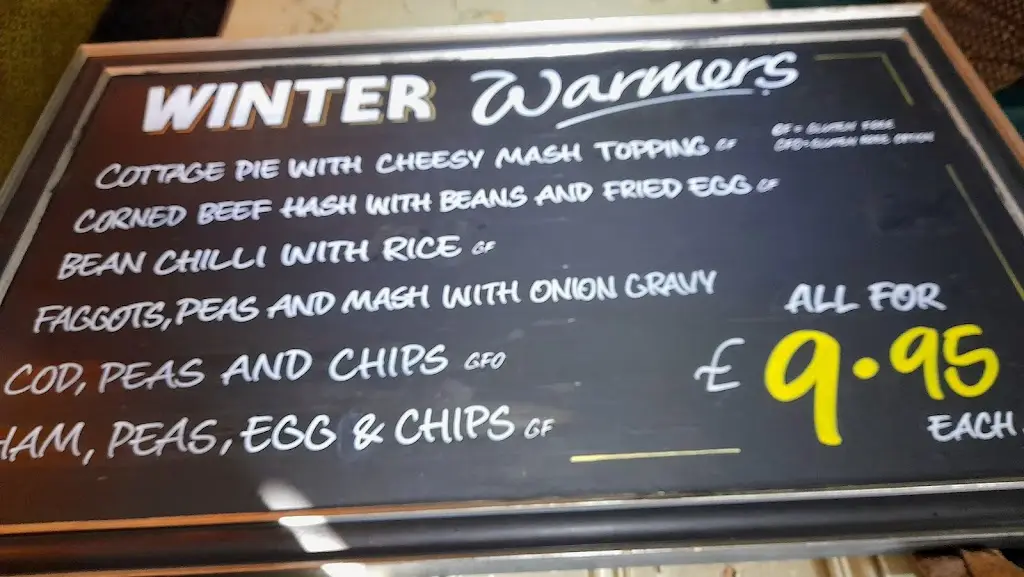 WINTER Warmers
GF = GLUTEN FREE
GFO = GLUTEN FREE OPTION
COTTAGE PIE WITH CHEESY MASH TOPPING GF
CORNED BEEF HASH WITH BEANS AND FRIED EGG GF
BEAN CHILLI WITH RICE GF
FAGGOTS, PEAS AND MASH WITH ONION GRAVY
COD, PEAS AND CHIPS GFO
HAM, PEAS, EGG & CHIPS GF
ALL FOR
£9.95
EACH